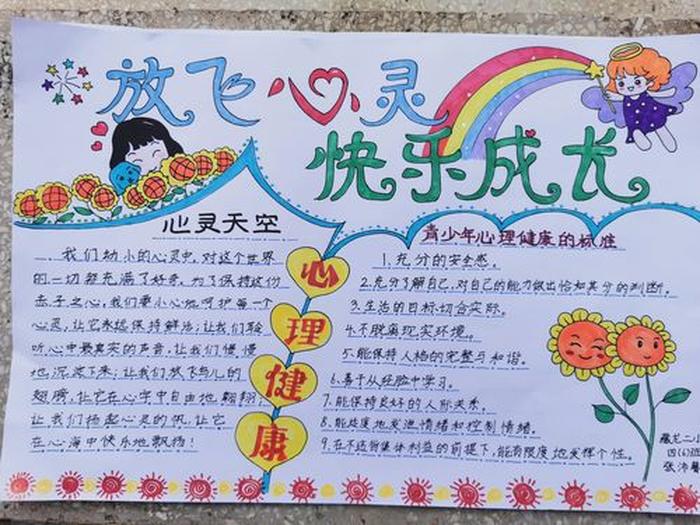 放飞心灵
快乐成长
心灵天空
我们幼小的心灵中,对这个世界
的一切都充满了好奇。为了保持这份
赤子之心,我们要小心地呵护每一个
心灵,让它永远保持鲜活;让我们聆
听心中最真实的声音,让我们慢慢
地沉淀下来;让我们放飞心儿的
翅膀,让它在心宇中自由地翱翔;
让我们扬起心灵的帆,让它
在心海中快乐地飘扬!
心
理
健
康
青少年心理健康的标准
1.充分的安全感。
2.充分了解自己,对自己的能力做出恰如其分的判断。
3.生活的目标切合实际。
4.不脱离现实环境。
5.能保持人格的完整与和谐。
6.善于从经验中学习。
7.能保持良好的人际关系。
8.能适度地发泄情绪和控制情绪。
9.在不违背集体利益的前提下,能有限度地发挥个性。
龙二
四(6)班
张沛